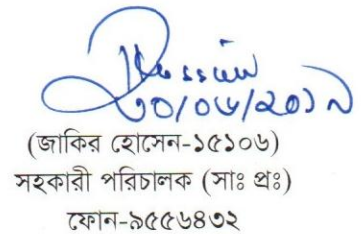 Hussain
৩০/০৬/২০১৯
(জাকির হোসেন-১৫১০৬)
সহকারী পরিচালক (সাঃ প্রঃ)
ফোন-৯৫৫৬৪৩২